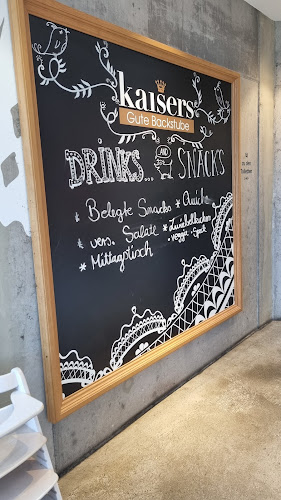 kaisers
Gute Backstube
DRINKS... AND SNACKS
* Belegte Snacks * Quiche
* vers. Salate * Zwiebelkuchen
* Mittagstisch . veggie . Speck